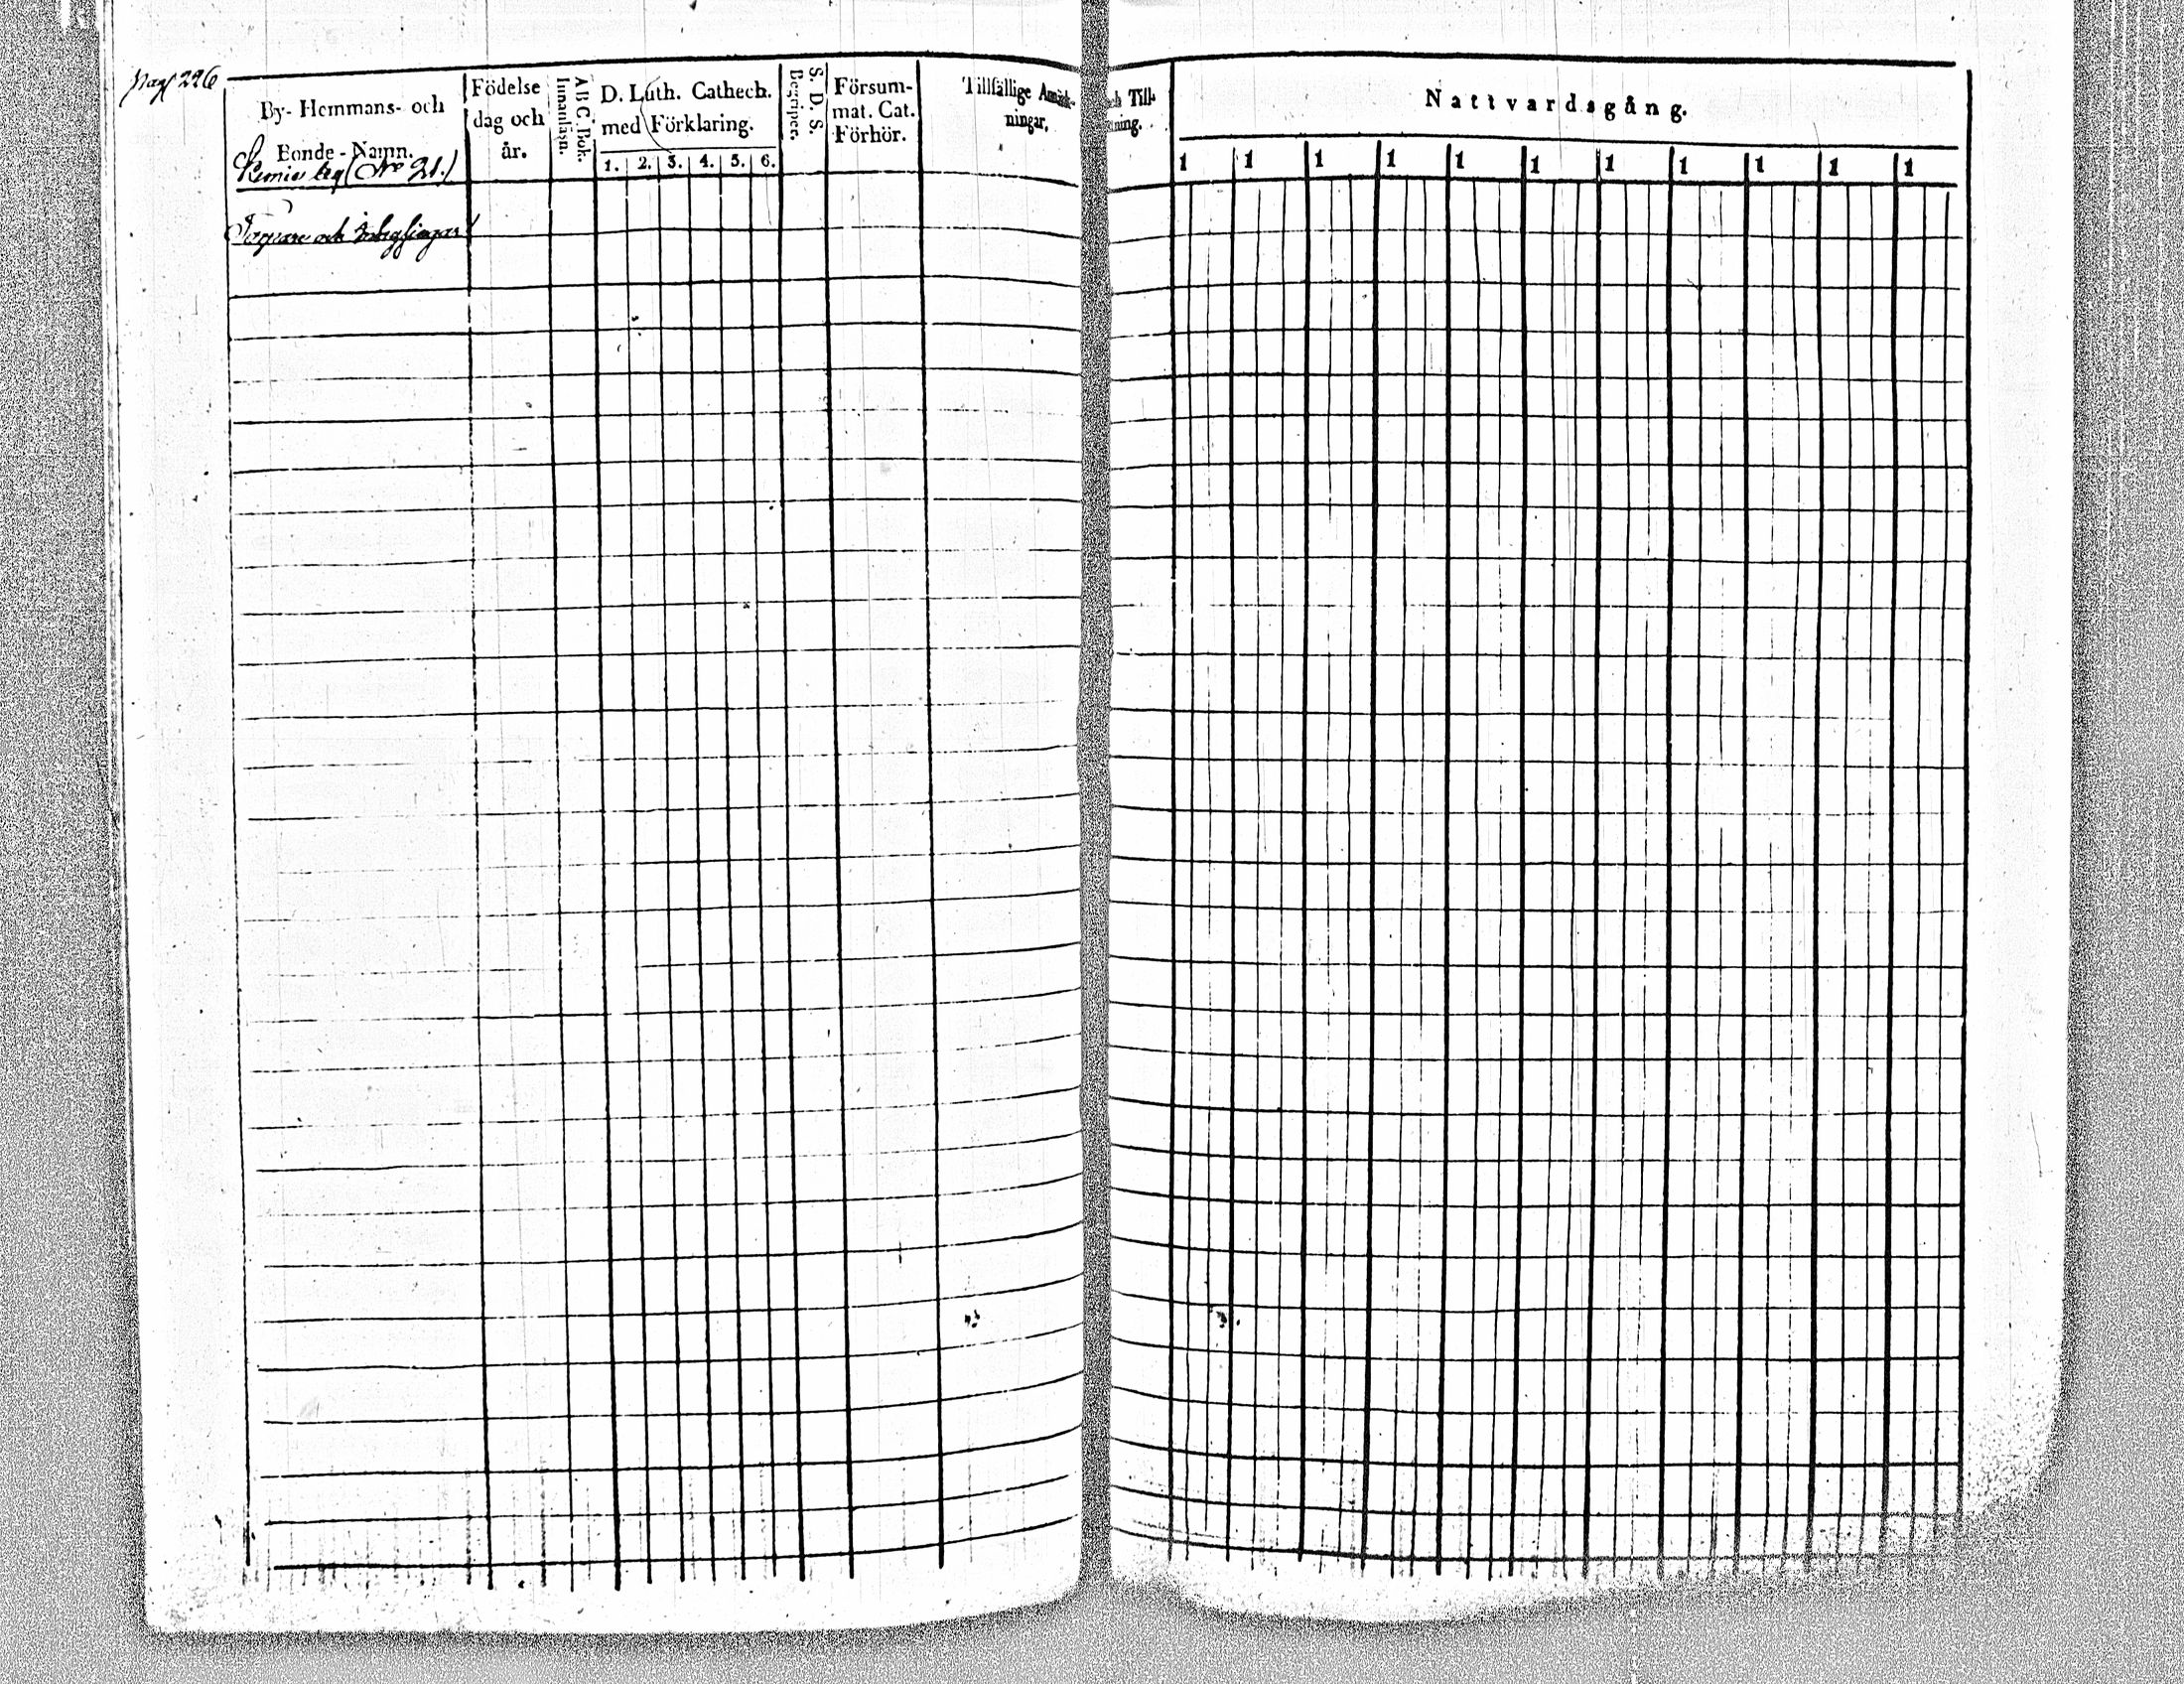 Pag 226
By- Hemmans- och
Bonde-Namn.
(No 21.)
Födelse
dag och
år.
A B C. Bok.
Innanläsn.
D. Luth. Cathech.
med Förklaring.
1. 2. 3. 4. 5. 6.
S. D. S.
Begriper.
Försum-
mat. Cat.
Förhör.
Tillfällige Anmärk-
ningar,
ch Till-
ning.
Nattvardsgång.
1 1 1 1 1 1 1 1 1 1 1
och Inhysingar